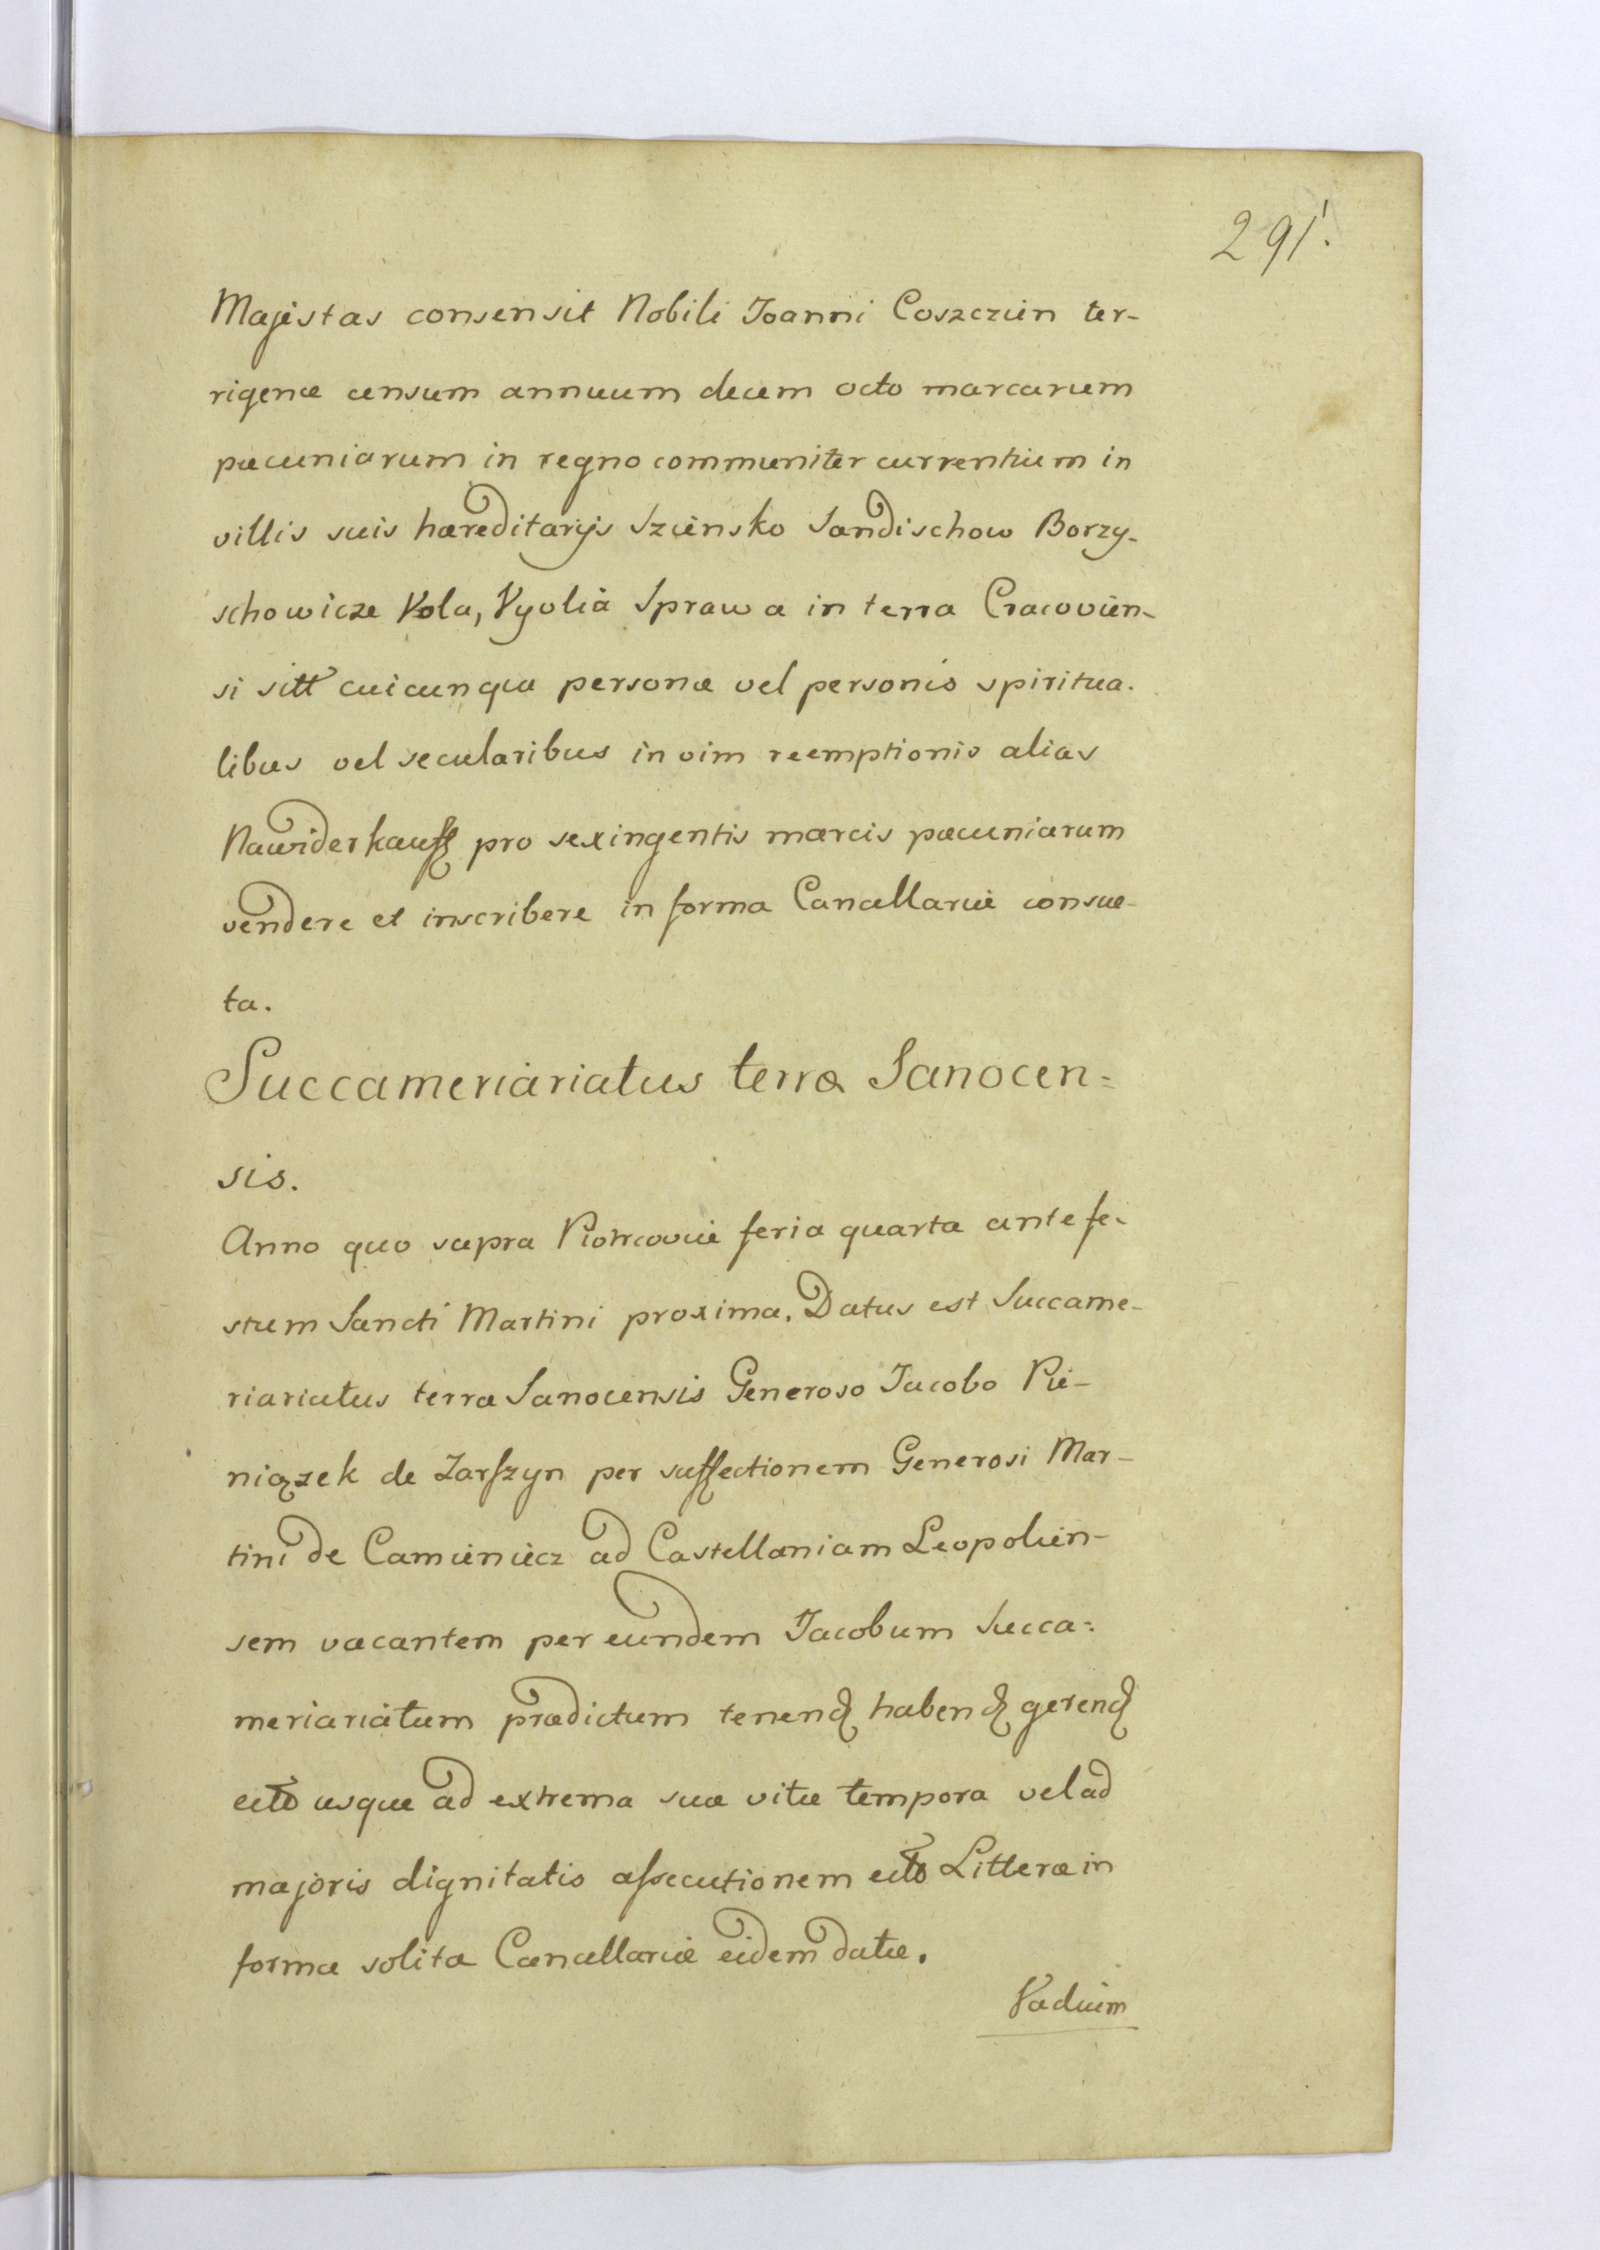 291.
Majestas consensit Nobili Joanni Coszczien ter-
rigenæ censum annuum decem octo marcarum
pæcuniarum in regno communiter currentium in
villis suis hæreditarijs Sziensko Sandischow Borzy-
schowicze Vola, Vyolia Sprawa in terra Cracovien-
si sitt cuicunque personæ vel personis spiritua-
libus vel secularibus in vim reemptionis alias
Nawiderkauff pro sexingentis marcis pæcuniarum
vendere et inscribere in forma Cancellariæ consue-
ta.
Succameriariatus terræ Sanocen=
sis.
Anno quo supra Piotrcoviæ feria quarta ante fe-
stum Sancti Martini proxima. Datus est Succame-
riariatus terræ Sanocensis Generoso Jacobo Pie-
niązek de Zarszyn per suffectionem Generosi Mar-
tini de Camieniecz ad Castellaniam Leopolien-
sem vacantem per eundem Jacobum Succa=
meriariatum prædictum tenend habend gerend
usque ad extrema suæ vitæ tempora vel ad
majoris dignitatis assecutionem Litteræ in
forma solita Cancellariæ eidem datæ.
Vadium